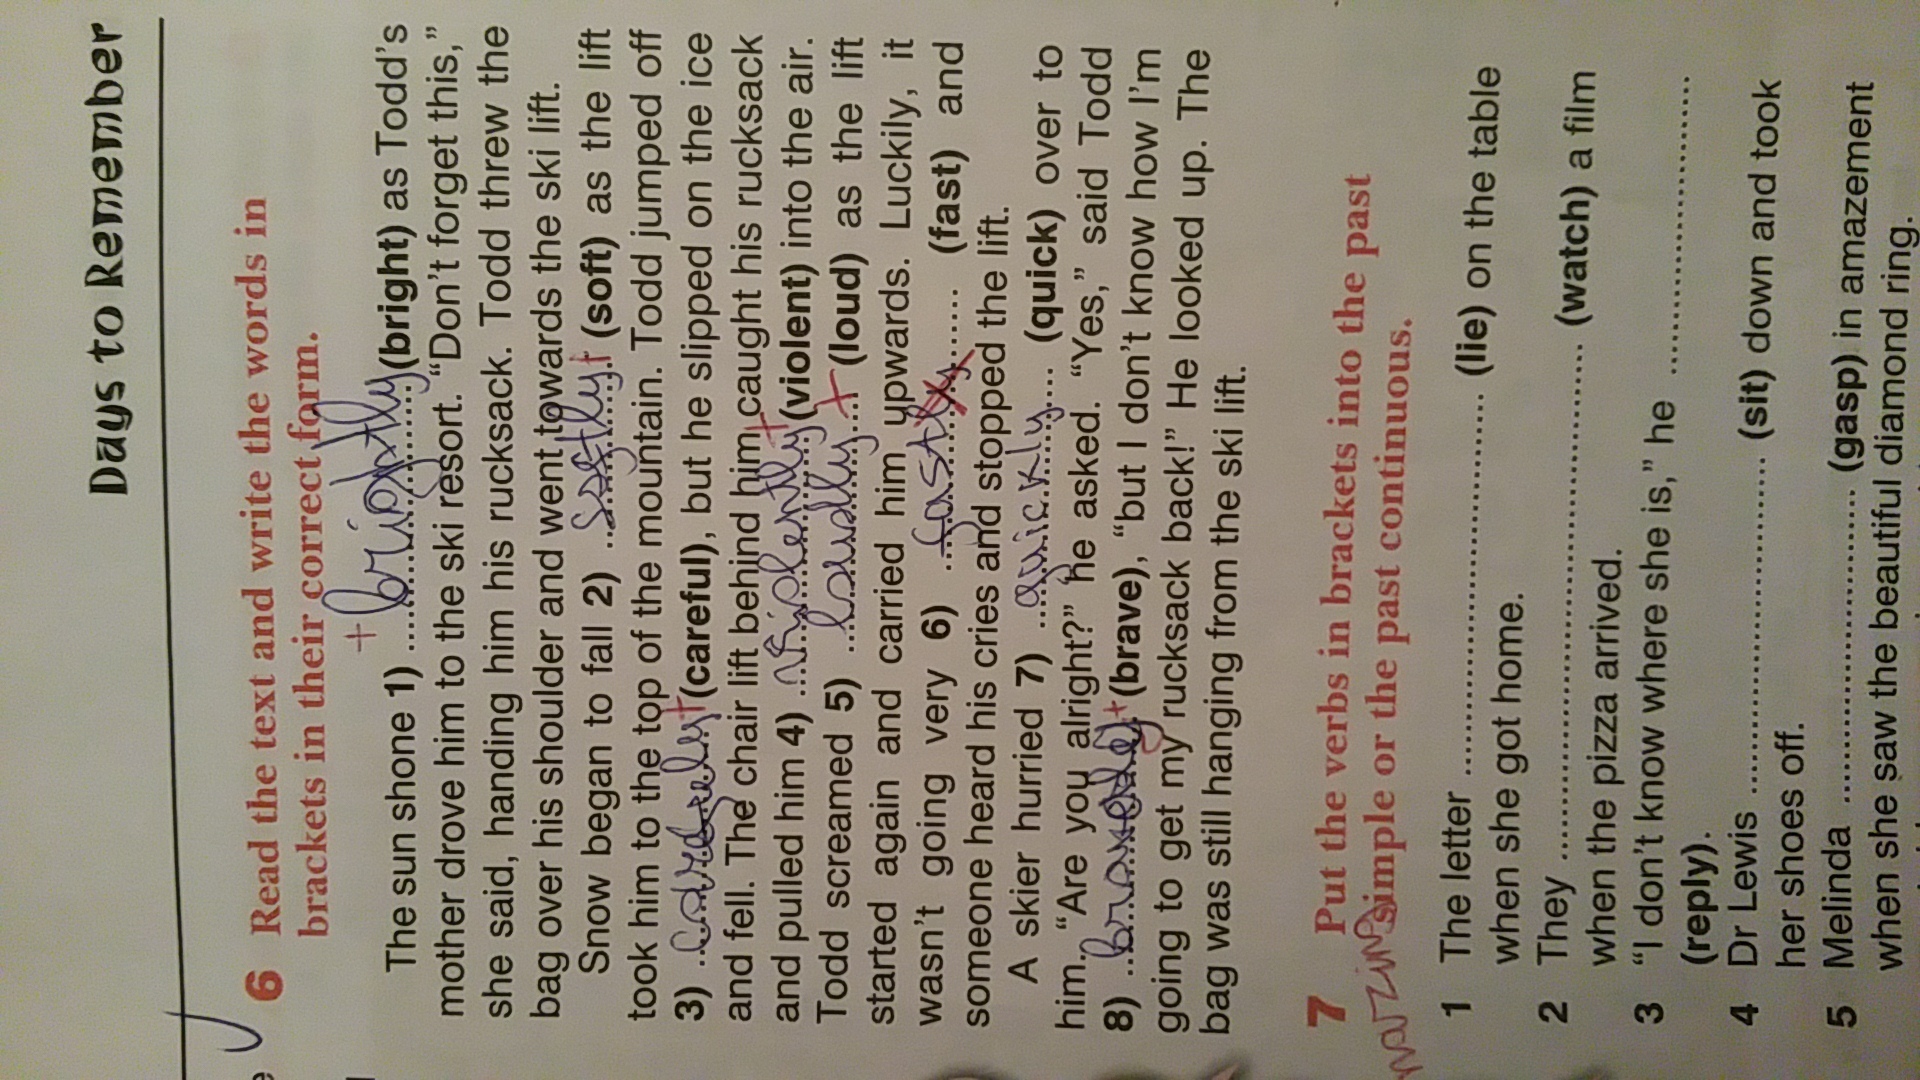 Days to Remember
6 Read the text and write the words in
brackets in their correct form.
The sun shone 1) brightly (bright) as Todd's
mother drove him to the ski resort. "Don't forget this,"
she said, handing him his rucksack. Todd threw the
bag over his shoulder and went towards the ski lift.
Snow began to fall 2) softly (soft) as the lift
took him to the top of the mountain. Todd jumped off
3) (careful), but he slipped on the ice
and fell. The chair lift behind him caught his rucksack
and pulled him 4) (violent) into the air.
Todd screamed 5) loudly (loud) as the lift
started again and carried him upwards. Luckily, it
wasn't going very 6) fast (fast) and
someone heard his cries and stopped the lift.
A skier hurried 7) quickly (quick) over to
him. "Are you alright?" he asked. "Yes," said Todd
8) (brave), "but I don't know how I'm
going to get my rucksack back!" He looked up. The
bag was still hanging from the ski lift.
7 Put the verbs in brackets into the past
simple or the past continuous.
1 The letter (lie) on the table
when she got home.
2 They (watch) a film
when the pizza arrived.
3 "I don't know where she is," he
(reply).
4 Dr Lewis (sit) down and took
her shoes off.
5 Melinda (gasp) in amazement
when she saw the beautiful diamond ring.